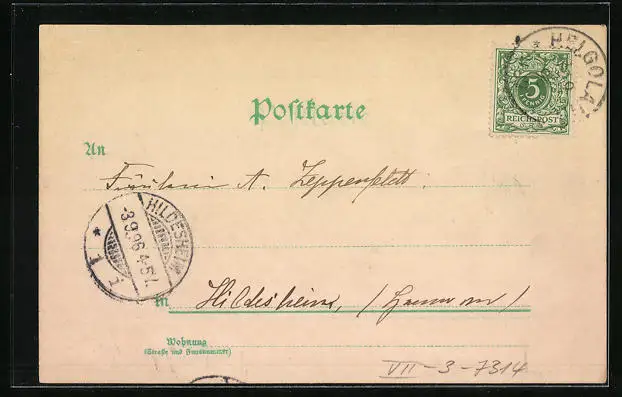 HELGOLA
5
PFENNIG
REICHSPOST
Postkarte
An
Fräulein A. Zeppenfeldt.
HILDESHEIM
3.9.96.4-5N.
* 1 1
In Hildesheim, (Hannover)
Wohnung
(Straße und Hausnummer)
VII-3-7314